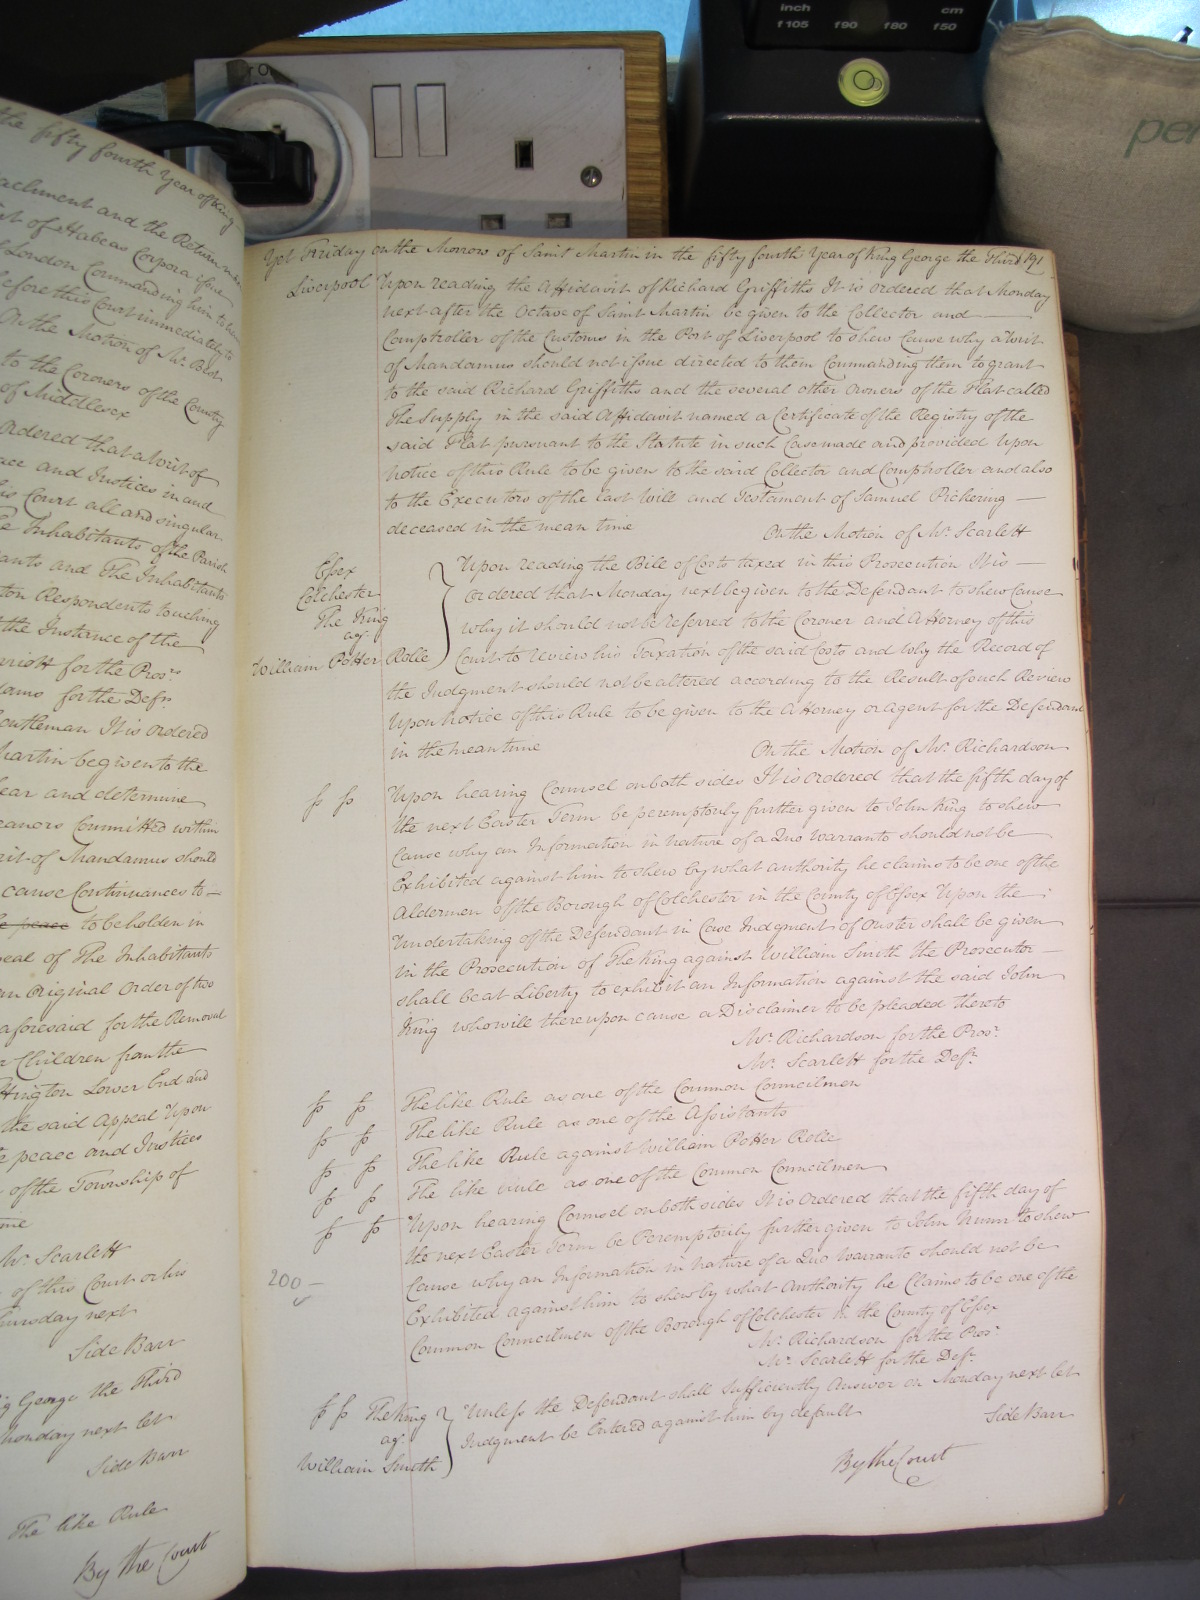 inch
cm
f105 f90 f80 f50
per
the fifty fourth Year of King
achment and the Return
rit of Habeas Corpora issue
London Commanding him to
before this Court immediately
On the Motion of Mr. Best
to the Coroners of the County
of Middlesex
Ordered that a Writ of
ace and Justices in and
is Court all and singular
The Inhabitants of the Parish
ants and The Inhabitants
ton Respondents touching
the Instance of the
arriott for the Pros.rs
dams for the Defts
Gentleman It is ordered
Martin be given to the
hear and determine
eanors Committed within
rit of Mandamus should
cause Continuances to
peace to be holden in
peal of The Inhabitants
an Original Order of two
aforesaid for the Removal
Children from the
ttington Lower End and
the said Appeal Upon
peace and Justices
of the Township of
me
Mr. Scarlett
of this Court or his
Thursday next
Side Barr
g George the Third
Monday next let
Side Barr
The like Rule
By the Court
Yet Friday on the Morrow of Saint Martin in the fifty fourth Year of King George the Third 191
Liverpool Upon reading the Affidavit of Richard Griffiths It is ordered that Monday
next after the Octave of Saint Martin be given to the Collector and
Comptroller of the Customs in the Port of Liverpool to shew Cause why a Writ
of Mandamus should not issue directed to them Commanding them to grant
to the said Richard Griffiths and the several other Owners of the Flat called
The Supply in the said Affidavit named a Certificate of the Registry of the
said Flat pursuant to the Statute in such Case made and provided Upon
notice of this Rule to be given to the said Collector and Comptroller and also
to the Executors of the last Will and Testament of Samuel Pickering
deceased in the mean time
On the Motion of Mr. Scarlett
Essex
Colchester
The King
agt
William Potter Rolle
Upon reading the Bill of Costs taxed in this Prosecution It is
Ordered that Monday next be given to the Defendant to shew Cause
why it should not be referred to the Coroner and Attorney of this
Court to review his Taxation of the said Costs and Why the Record of
the Judgment should not be altered according to the Result of such Review
Upon notice of this Rule to be given to the Attorney or agent for the Defendant
in the mean time
On the Motion of Mr. Richardson
Upon hearing Counsel on both sides It is ordered that the fifth day of
the next Easter Term be peremptorily further given to John King to shew
Cause why an Information in nature of a Quo Warranto should not be
Exhibited against him to shew by what authority he claims to be one of the
Aldermen of the Borough of Colchester in the County of Essex Upon the
Undertaking of the Defendant in Case Judgment of Ouster shall be given
in the Prosecution of The King against William Smith the Prosecutor
shall be at Liberty to exhibit an Information against the said John
King who will thereupon cause a Disclaimer to be pleaded thereto
Mr. Richardson for the Pros.r
Mr. Scarlett for the Deft.
The like Rule as one of the Common Councilmen
The like Rule as one of the Assistants
The like Rule against William Potter Rolle
The like Rule as one of the Common Councilmen
Upon hearing Counsel on both sides It is Ordered that the fifth day of
the next Easter Term be Peremptorily further given to John Nunn to shew
Cause why an Information in nature of a Quo Warranto should not be
200 -
Exhibited against him to shew by what Authority he Claims to be one of the
Common Councilmen of the Borough of Colchester in the County of Essex
Mr. Richardson for the Pros.r
Mr. Scarlett for the Deft.
The King
agt
William Smith
Unless the Defendant shall sufficiently Answer on Monday next let
Judgment be Entered against him by default
Side Barr
By the Court